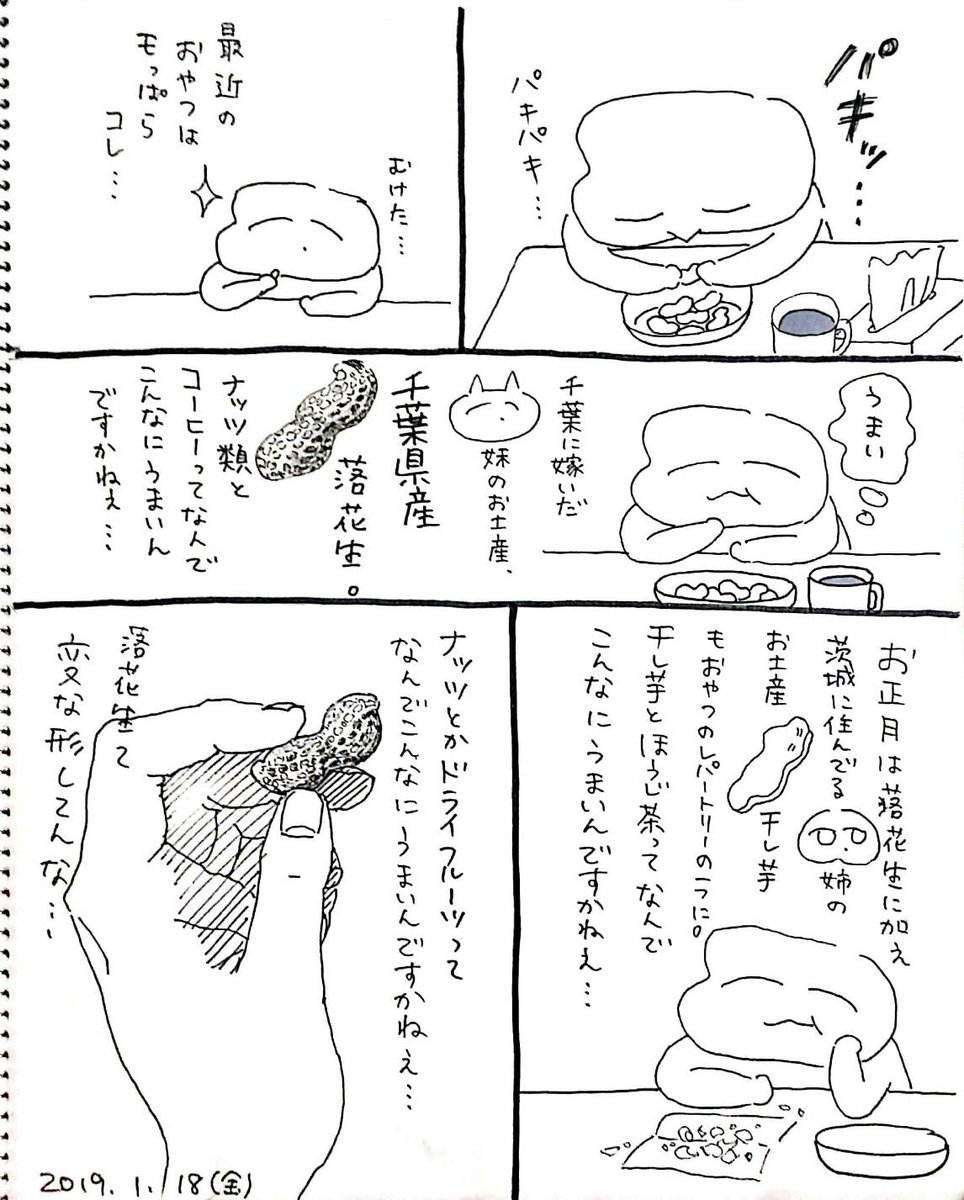 パキッ…
パキパキ…
むけた…
最近の
おやつは
もっぱら
コレ…
うまい
千葉に嫁いだ
妹のお土産、
千葉県産
落花生。
ナッツ類と
コーヒーってなんで
こんなにうまいん
ですかねぇ…
お正月は落花生に加え
茨城に住んでる
姉の
お土産
干し芋
もおやつのレパートリーの一つに。
干し芋とほうじ茶ってなんで
こんなにうまいんですかねぇ…
ナッツとかドライフルーツって
なんでこんなにうまいんですかねぇ…
落花生て
変な形してんな…
2019.1.18(金)